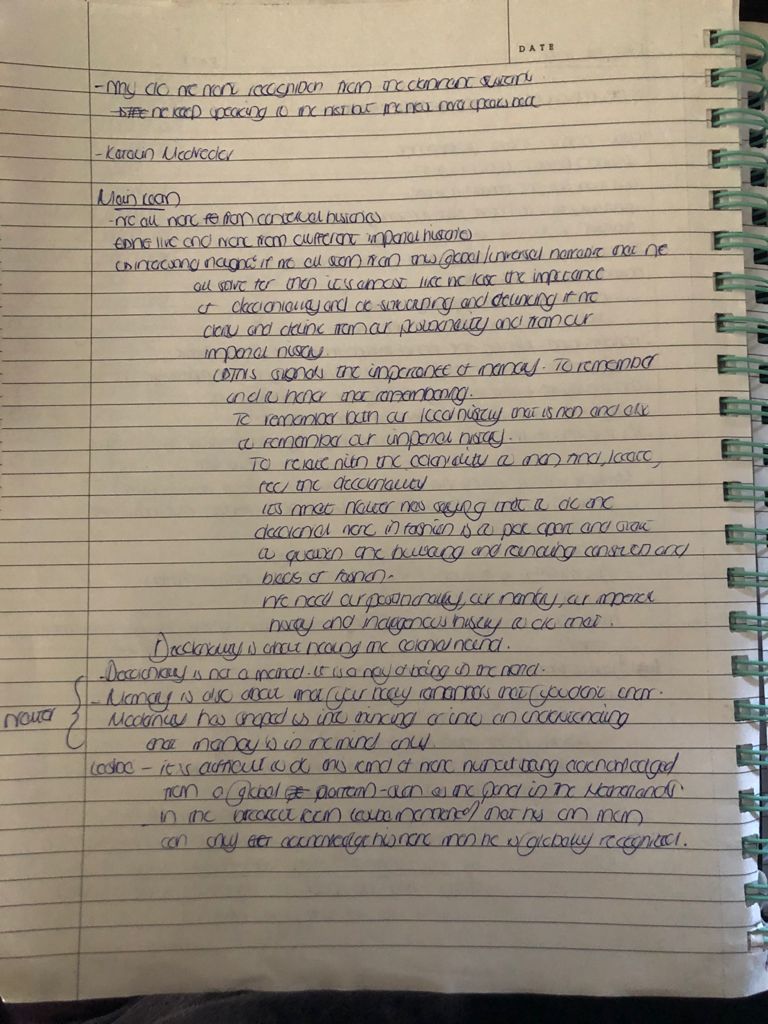 DATE
- Why do we want recognition from the dominant system.
we keep speaking to the west but the west never speaks back
- Karolin Medvedev
Main room
- we all work from contextual histories
some live and work from different imperial histories
imagine if we all stem from this global/universal narrative that we
all solve for then it is almost like we lose the importance
of decoloniality and de-silencing and delinking if we
deny and decline from our positionality and from our
imperial history
This signals the importance of memory. To remember
and to honor that remembering.
To remember both our local history that is rich and also
to remember our imperial history.
To relate with the coloniality to then find, locate,
feel the decoloniality
It's what was saying that to do the
decolonial work in fashion is to pick apart and
to question the and construct and
of fashion.
We need our positionality, our memory, our imperial
history and indigenous history to do that.
Decoloniality is about healing the colonial wound.
- Decoloniality is not a method. It is a way of being in the world.
- Memory is also about what your body remembers that you dont know.
Modernity has shaped us into thinking or into an understanding
that memory is in the mind only.
- it is difficult to do this kind of work without being acknowledged
from a global platform - even as the panel in the Netherlands.
in the breakout room that his own mom
can only acknowledge his work when he is globally recognized.